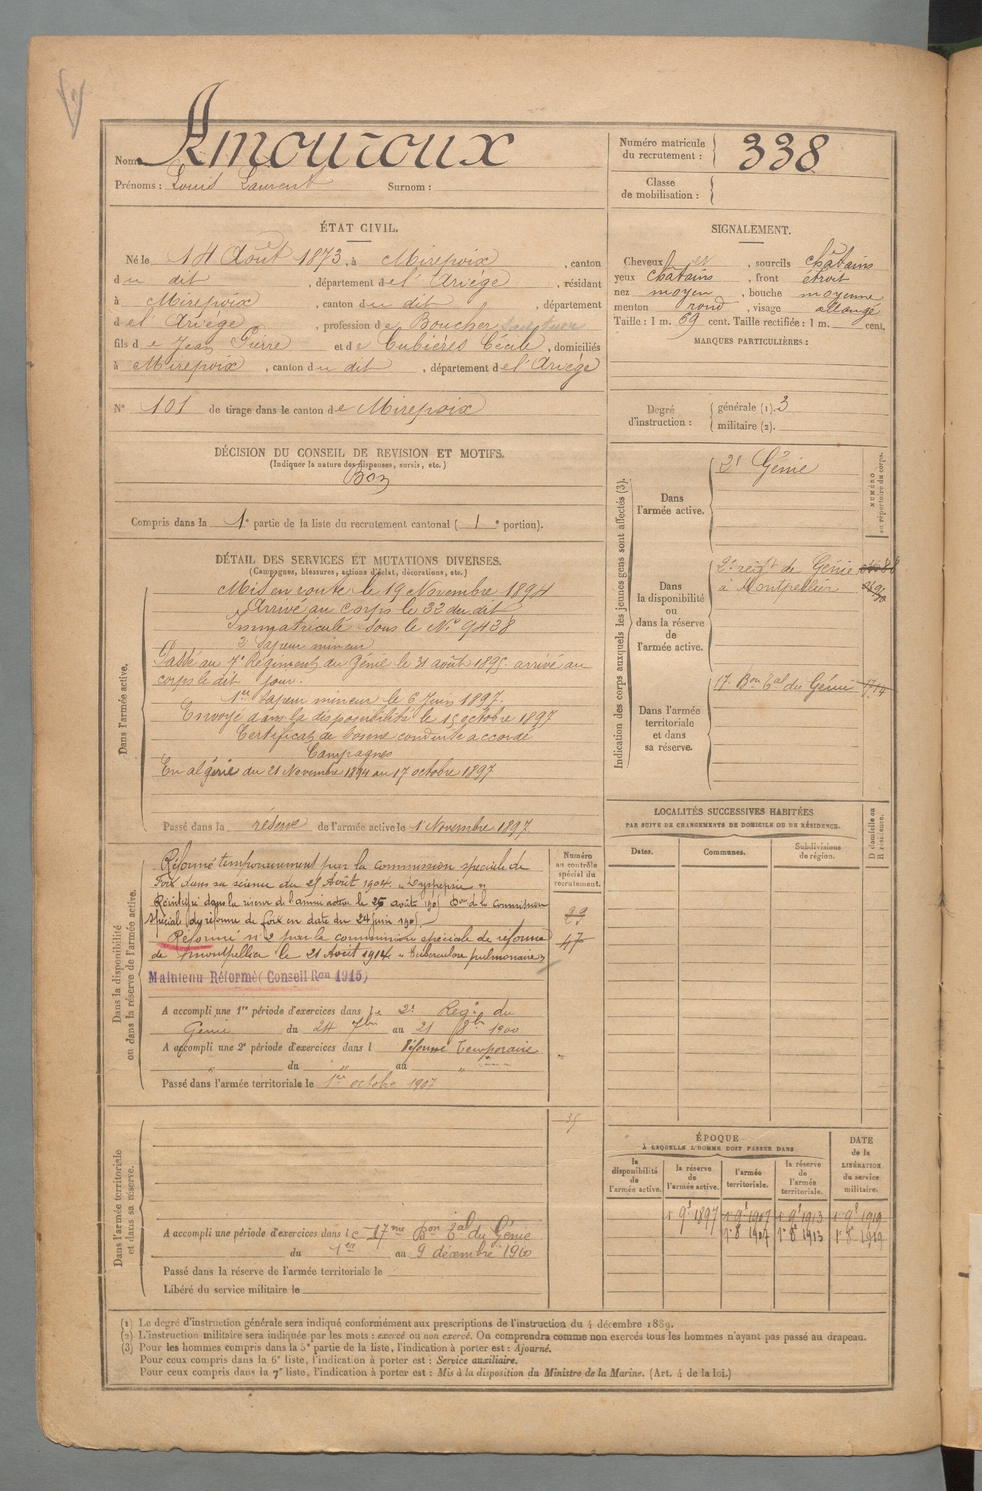 Nom : Amouroux
Prénoms : Louis Laurent Surnom :
Numéro matricule du recrutement : 338
Classe de mobilisation :
ÉTAT CIVIL.
Né le 14 Août 1873, à Mirepoix, canton
du dit, département de l'Ariège, résidant
à Mirepoix, canton du dit, département
de l'Ariège, profession de Boucher
fils de Jean Pierre et de Cubières Cécile, domiciliés
à Mirepoix, canton du dit, département de l'Ariège
N° 101 de tirage dans le canton de Mirepoix
SIGNALEMENT.
Cheveux et, sourcils châtains
yeux châtains, front étroit
nez moyen, bouche moyenne
menton rond, visage allongé
Taille : 1 m. 69 cent. Taille rectifiée : 1 m. cent.
MARQUES PARTICULIÈRES :
Degré d'instruction : générale (1). 3
militaire (2).
DÉCISION DU CONSEIL DE REVISION ET MOTIFS.
(Indiquer la nature des dispenses, sursis, etc.)
Bon
Compris dans la 1e partie de la liste du recrutement cantonal ( 1 e portion).
DÉTAIL DES SERVICES ET MUTATIONS DIVERSES.
(Campagnes, blessures, actions d'éclat, décorations, etc.)
Dans l'armée active.
Mis en route le 19 Novembre 1894
Arrivé au corps le 22 du dit
Immatriculé sous le N° 9438
2e Sapeur mineur
Passé au 7e Régiment du Génie le 31 août 1895 arrivé au
corps le dit jour.
1er Sapeur mineur le 6 Juin 1897.
Envoyé dans la disponibilité le 15 octobre 1897
Certificat de bonne conduite accordé
Campagnes
En algérie du 21 Novembre 1894 au 17 octobre 1897
Passé dans la réserve de l'armée active le 1 Novembre 1897
Dans la disponibilité ou dans la réserve de l'armée active.
Réformé temporairement par la commission spéciale de
Foix dans sa séance du 25 Août 1904 "Dyspepsie"
Réintégré dans la réserve de l'armée active le 25 août 190 Don de la Commission
Spéciale de réforme de foix en date du 24 juin 190
Réformé n° 2 par la commission spéciale de réforme
de Montpellier le 21 Août 1914 "Tuberculose pulmonaire"
Maintenu Réformé (Conseil Ron 1915)
Numéro au contrôle spécial du recrutement.
47
A accompli une 1re période d'exercices dans le 2e Regt du
Génie du 24 7bre au 21 8bre 1900
A accompli une 2e période d'exercices dans l Réformé Temporaire
" du " au "
Passé dans l'armée territoriale le 1er octobre 1907
Dans l'armée territoriale et dans sa réserve.
A accompli une période d'exercices dans le 17me Bon tal du Génie
du 1er au 9 décembre 1910
Passé dans la réserve de l'armée territoriale le
Libéré du service militaire le
Indication des corps auxquels les jeunes gens sont affectés (3).
NUMÉRO au répertoire du corps.
Dans l'armée active.
2e Génie
Dans la disponibilité ou dans la réserve de l'armée active.
2e regt de Génie
à Montpellier
Dans l'armée territoriale et dans sa réserve.
17 Bon tal du Génie
LOCALITÉS SUCCESSIVES HABITÉES
PAR SUITE DE CHANGEMENTS DE DOMICILE OU DE RÉSIDENCE.
Dates. Communes. Subdivisions de région. D domicile ou R résidence.
ÉPOQUE
À LAQUELLE L'HOMME DOIT PASSER DANS
DATE de la LIBÉRATION du service militaire.
la disponibilité de l'armée active. la réserve de l'armée active. l'armée territoriale. la réserve de l'armée territoriale.
1 9e 1897 1 9e 1907 1 9e 1913 1 9e 1919
1e 8 1907 1e 8 1913 1e 8 1919
(1) Le degré d'instruction générale sera indiqué conformément aux prescriptions de l'instruction du 4 décembre 1889.
(2) L'instruction militaire sera indiquée par les mots : exercé ou non exercé. On comprendra comme non exercés tous les hommes n'ayant pas passé au drapeau.
(3) Pour les hommes compris dans la 5e partie de la liste, l'indication à porter est : Ajourné.
Pour ceux compris dans la 6e liste, l'indication à porter est : Service auxiliaire.
Pour ceux compris dans la 7e liste, l'indication à porter est : Mis à la disposition du Ministre de la Marine. (Art. 4 de la loi.)